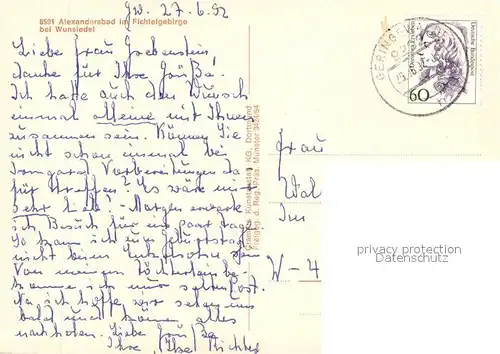 Gw. 27.6.92
8591 Alexandersbad im Fichtelgebirge
bei Wunsiedel
Liebe Frau Grebenstein!
danke für Ihre Grüße!
Ich hatte auch den Wunsch
einmal alleine mit Ihnen
zusammen sein. Können Sie
nicht schon einmal bei
Irmgard Vorbereitungen da
für treffen? Es wäre mir
sehr lieb! - Morgen erwarte
ich Besuch für ein paar Tage
So kann ich zum Geburtstag
nicht beim
Von meinen Töchtern be-
komme ich nur selten Post.
Na ich hoffe wir sehen uns
bald und können alles
nachholen. Liebe Grüße
Ihre Ilse Richter
Cramers Kunstanstalt KG, Dortmund
Freigeg. d. Reg. Präs. Münster
Deutsche Bundespost
60
Frau
Wal
Im
W-4
privacy protection
Datenschutz